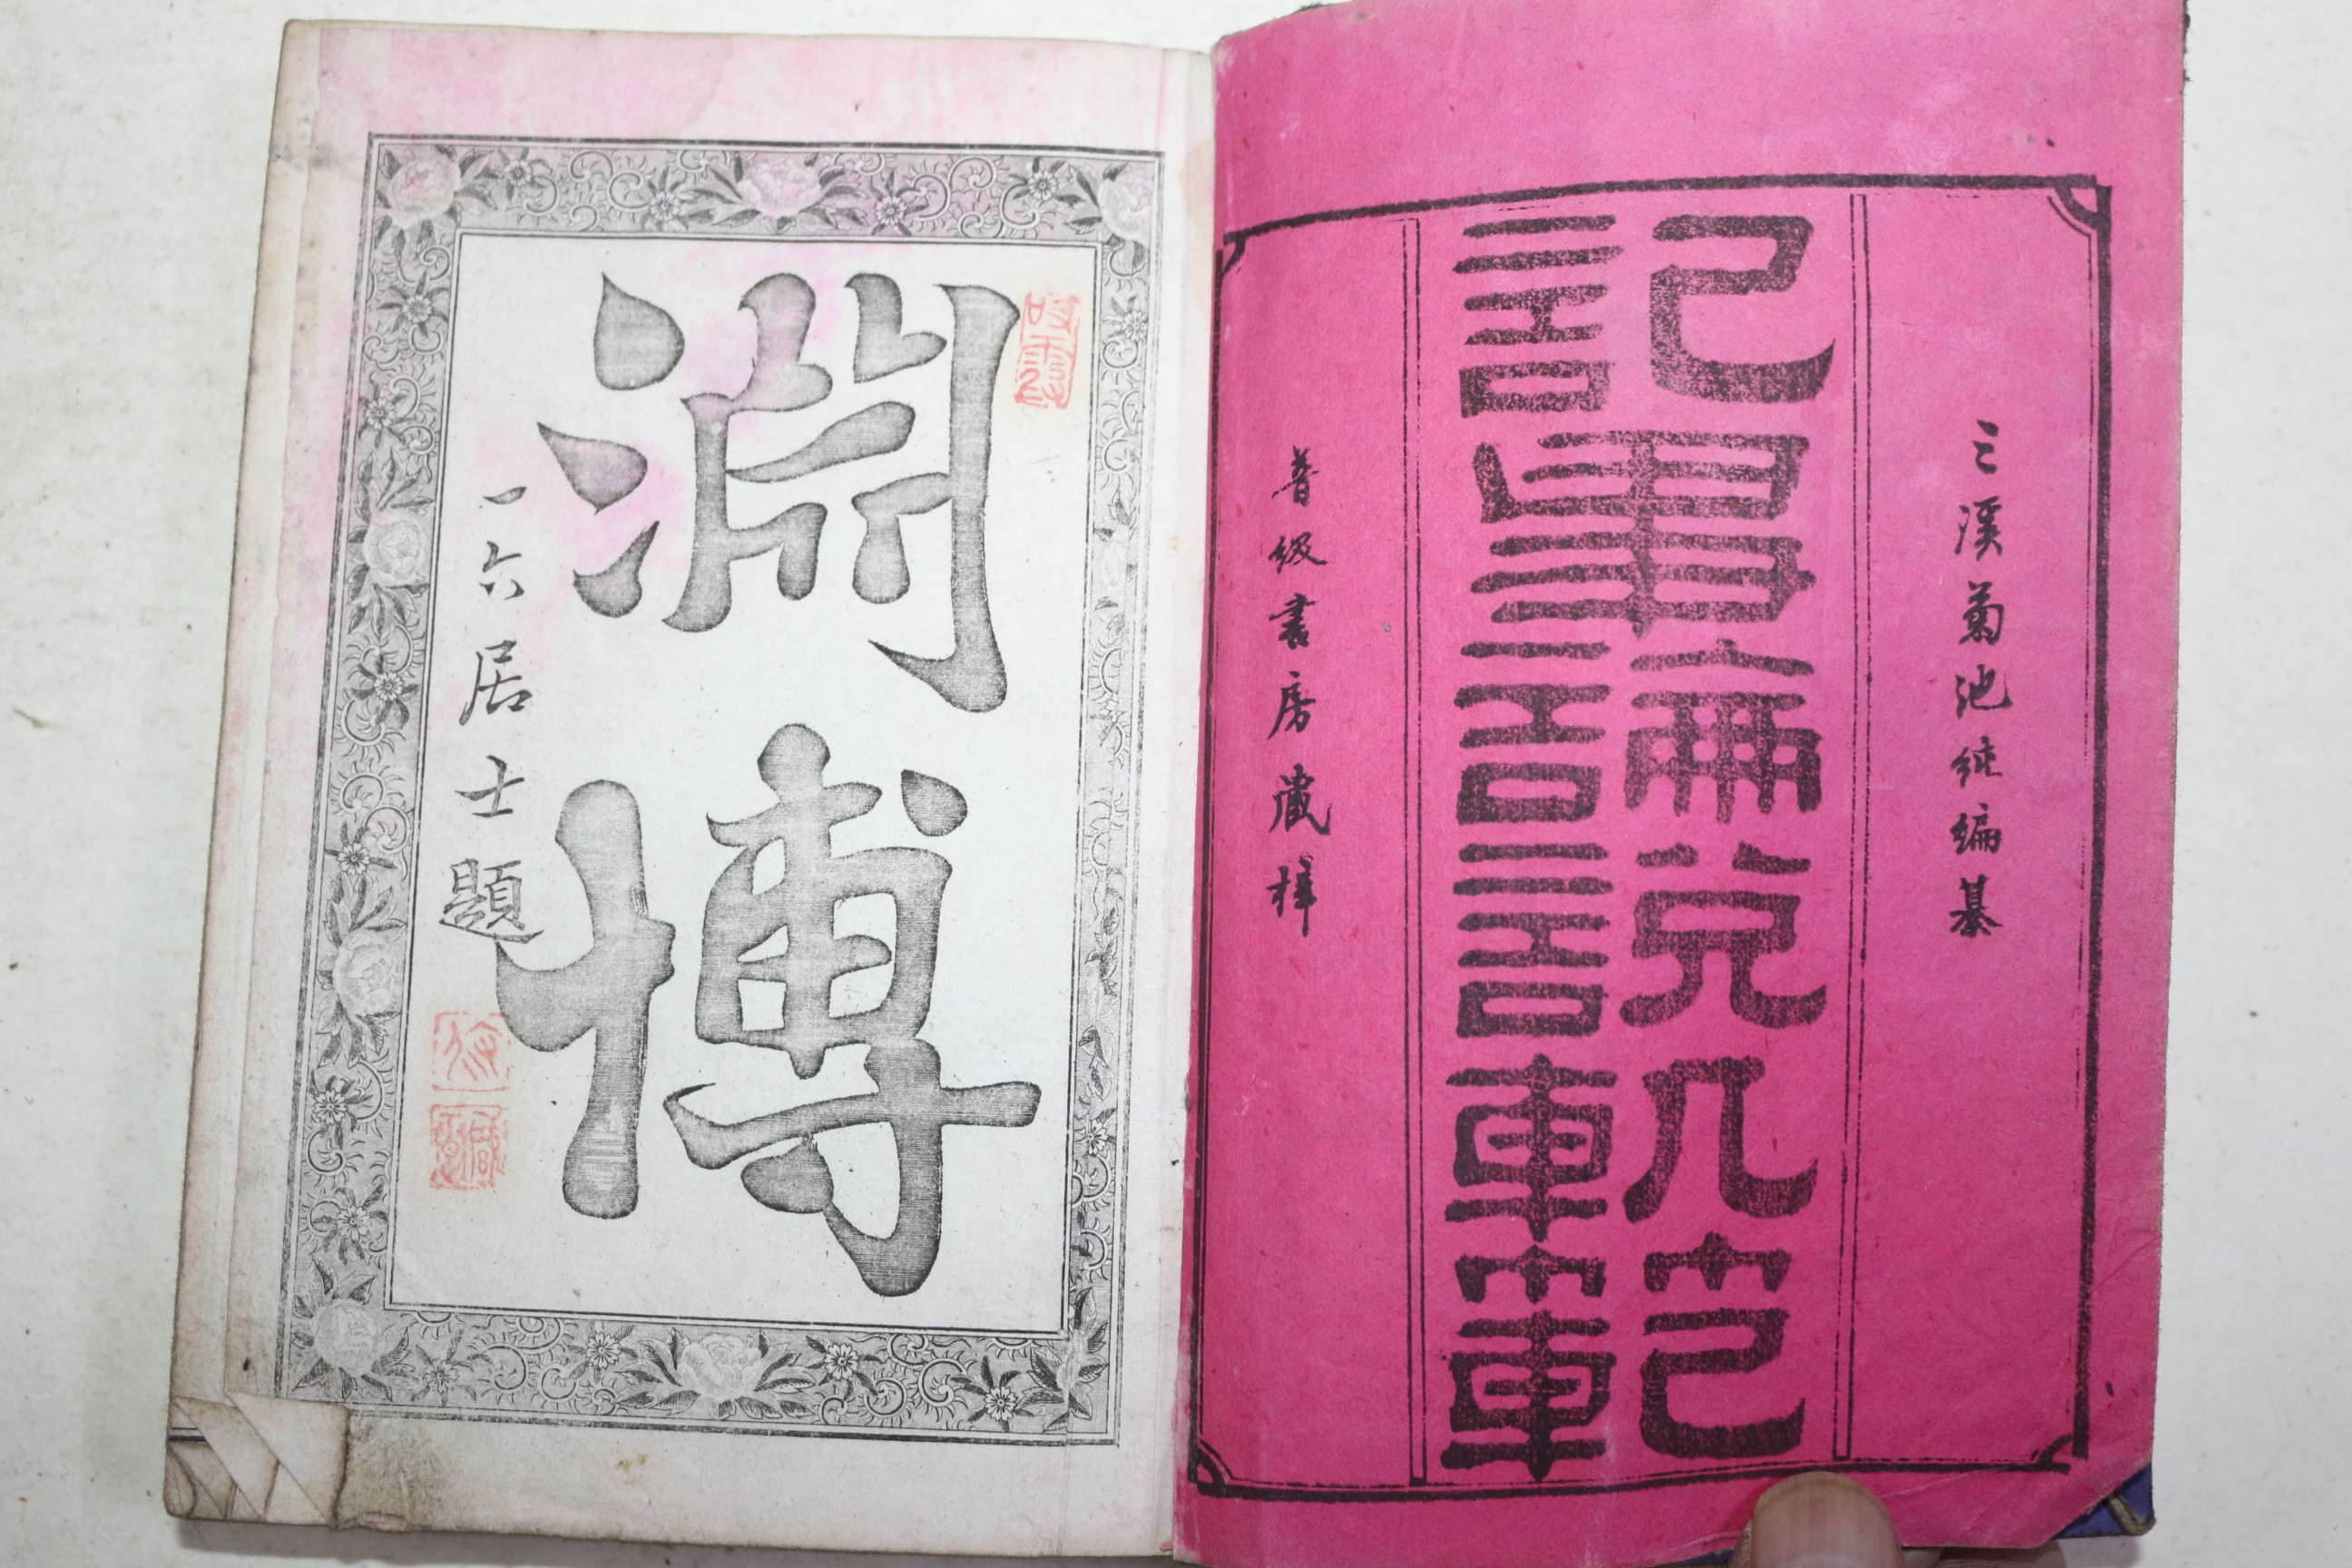 三溪菊池純編纂
記事論説軌範
普級書房藏梓
淵博
一六居士題